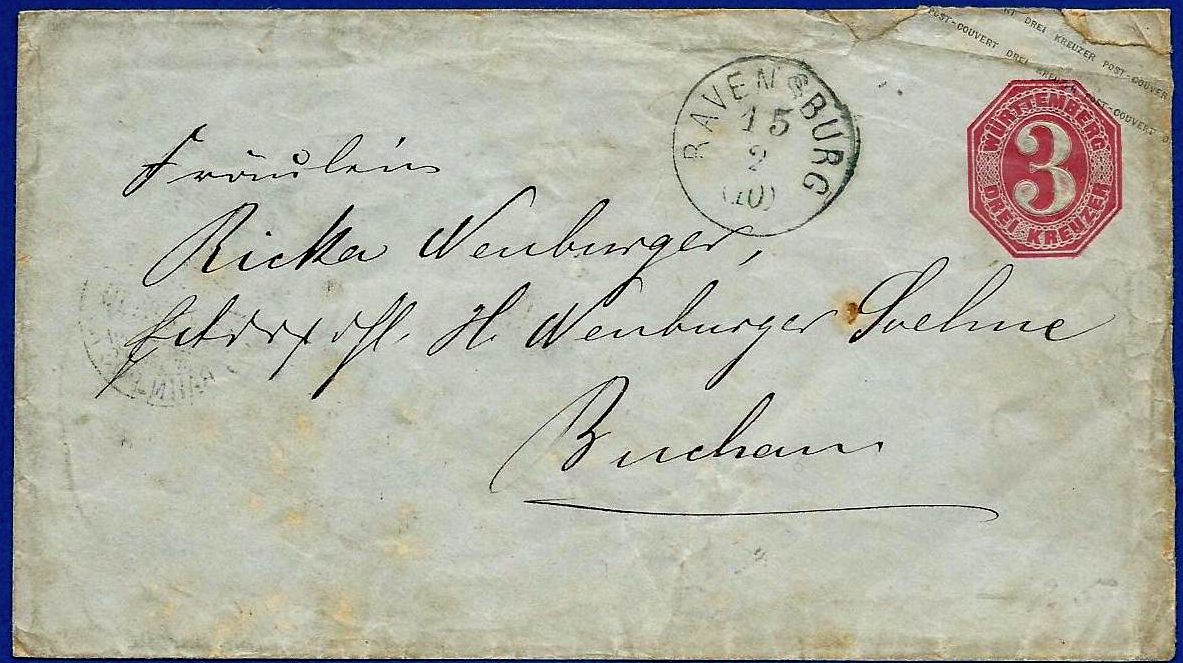 POST-COUVERT DREI KREUZER POST-COUVERT
DREI KREUZER POST-COUVER
WÜRTTEMBERG
3
DREI KREUZER
RAVENSBURG
15
2
(10)
Fräulein
Ricka Neuburger,
H. Neuburger Soehne
Buchau